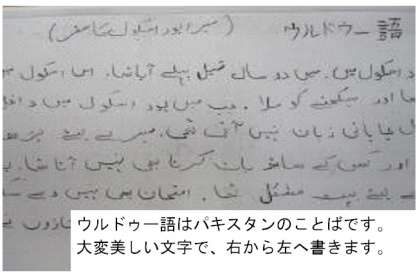 (میرا اسکول کا سفر) ウルドゥー語
اسکول میں۔ میں دو سال قبل پہلے آیا تھا۔ اس اسکول
اور سیکھنے کو ملا۔ جب میں اسکول میں
جاپانی زبان نہیں آتی تھی۔ میرے لیئے
اور کسی کے ساتھ بات کرنا بھی نہیں آتا تھا۔
لیئے بہت مشکل تھا۔ امتحان بھی نہیں دے
ウルドゥー語はパキスタンのことばです。
大変美しい文字で、右から左へ書きます。